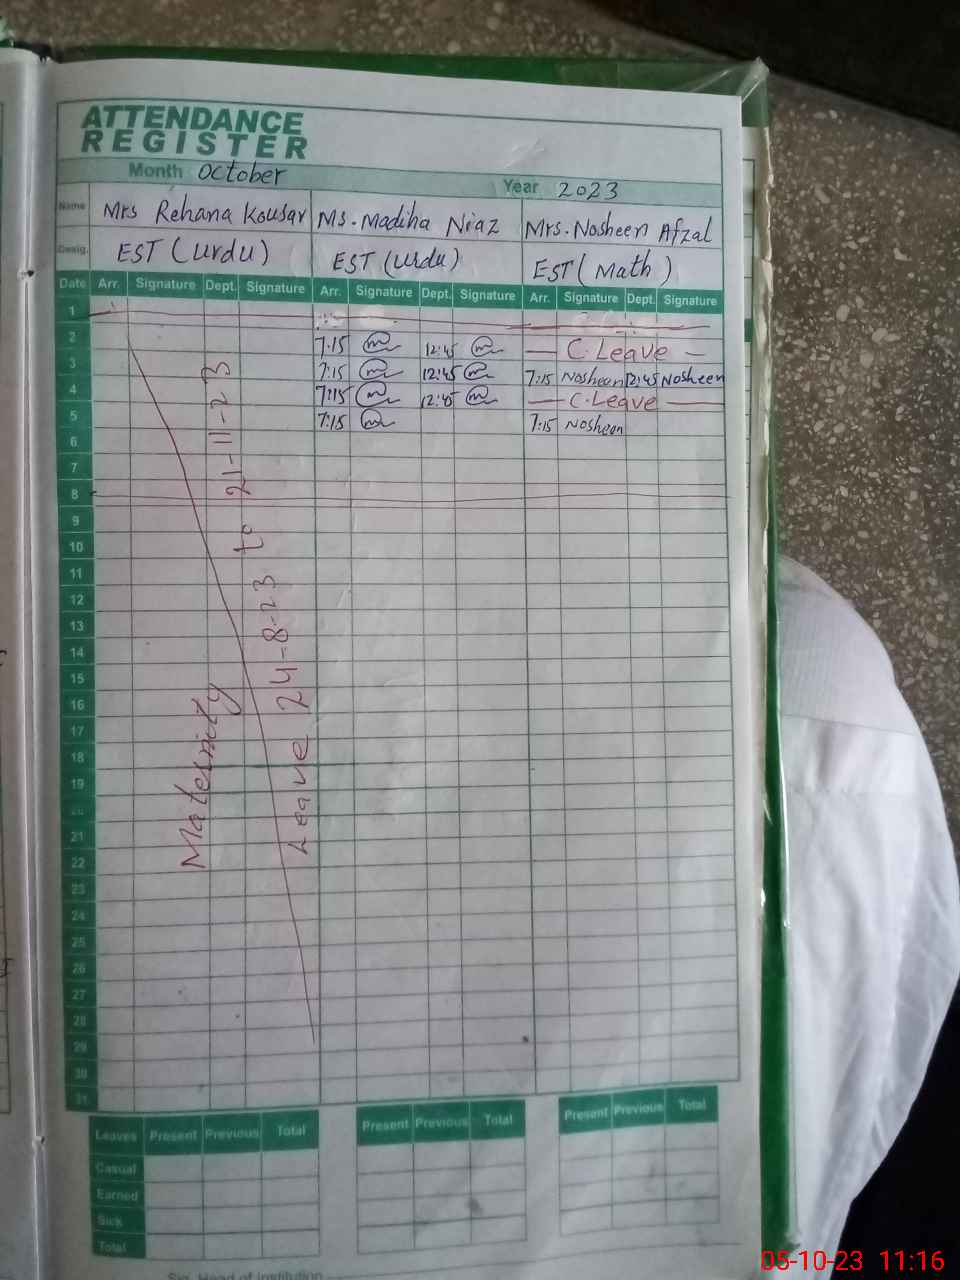 ATTENDANCE
REGISTER
Month October Year 2023
Name Mrs Rehana Kousar Ms. Madiha Niaz Mrs. Nosheen Afzal
Desig. EST (Urdu) EST (Urdu) EST (Math)
Date Arr. Signature Dept. Signature Arr. Signature Dept. Signature Arr. Signature Dept. Signature
1
2 7:15 12:45 — C. Leave —
3 7:15 12:45 7:15 Nosheen 12:45 Nosheen
4 7:15 12:45 — C. Leave —
5 7:15 7:15 Nosheen
6
7
8
9
10
11
12
13
14
15
16
17
18
19
20
21
22
23
24
25
26
27
28
29
30
31
Maternity
Leave 24-8-23 to 21-11-23
Leaves Present Previous Total Present Previous Total Present Previous Total
Casual
Earned
Sick
Total
Sig. Head of Institution
05-10-23 11:16